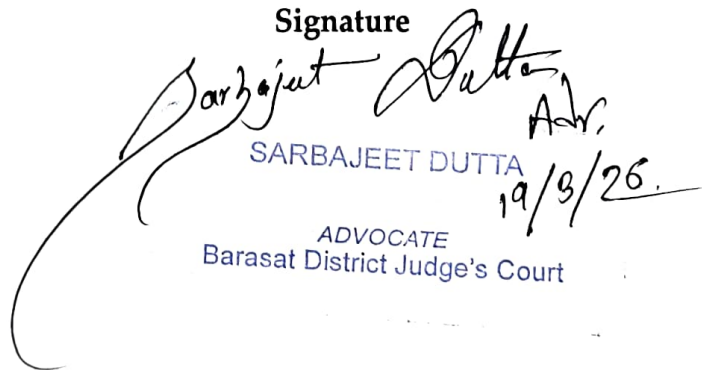 Signature
Sarbajeet Dutta
Adv.
SARBAJEET DUTTA
19/3/26.
ADVOCATE
Barasat District Judge's Court